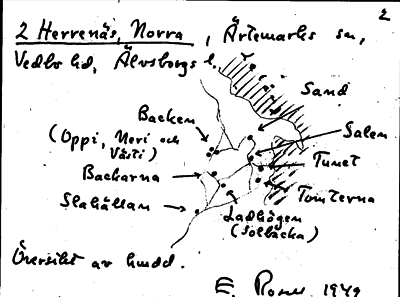 2
2 Herrenäs, Norra, Ärtemarks sn,
Vedbo hd, Älvsborgs l.
Sand
Backen
(Oppi, Neri och
Västi)
Salen
Tunet
Backarna
Tomterna
Slahällan
Ladhögen
(Solbacka)
Översikt av hmdd.
E. 1949